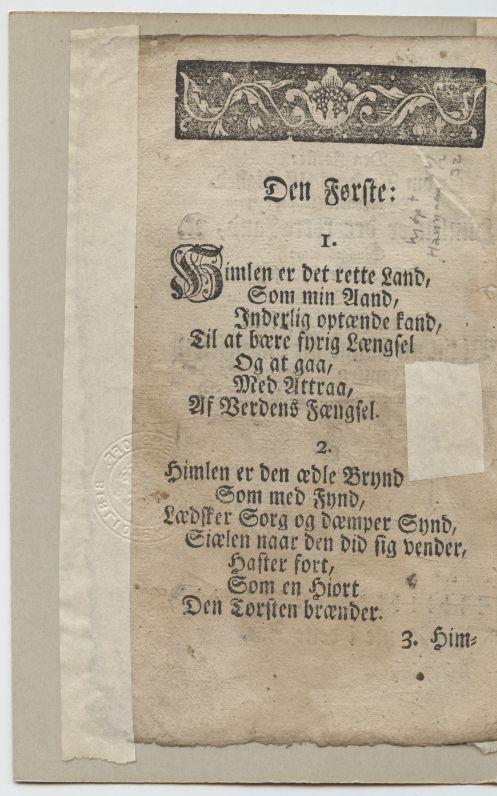 Den Første:
1.
Himlen er det rette Land,
Som min Aand,
Inderlig optænde kand,
Til at bære fyrig Længsel
Og at gaa,
Med Attraa,
Af Verdens Fængsel.
2.
Himlen er den ædle Brynd
Som med Fynd,
Lædsker Sorg og dæmper Synd,
Siælen naar den did sig vender,
Haster fort,
Som en Hiort
Den Torsten brænder.
3. Him-